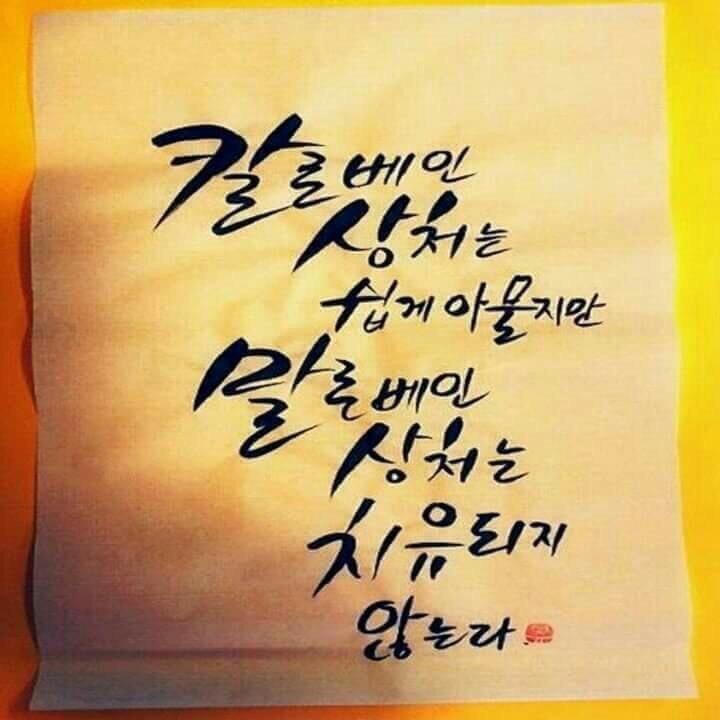 칼로베인
상처는
쉽게 아물지만
말로베인
상처는
치유되지
않는라